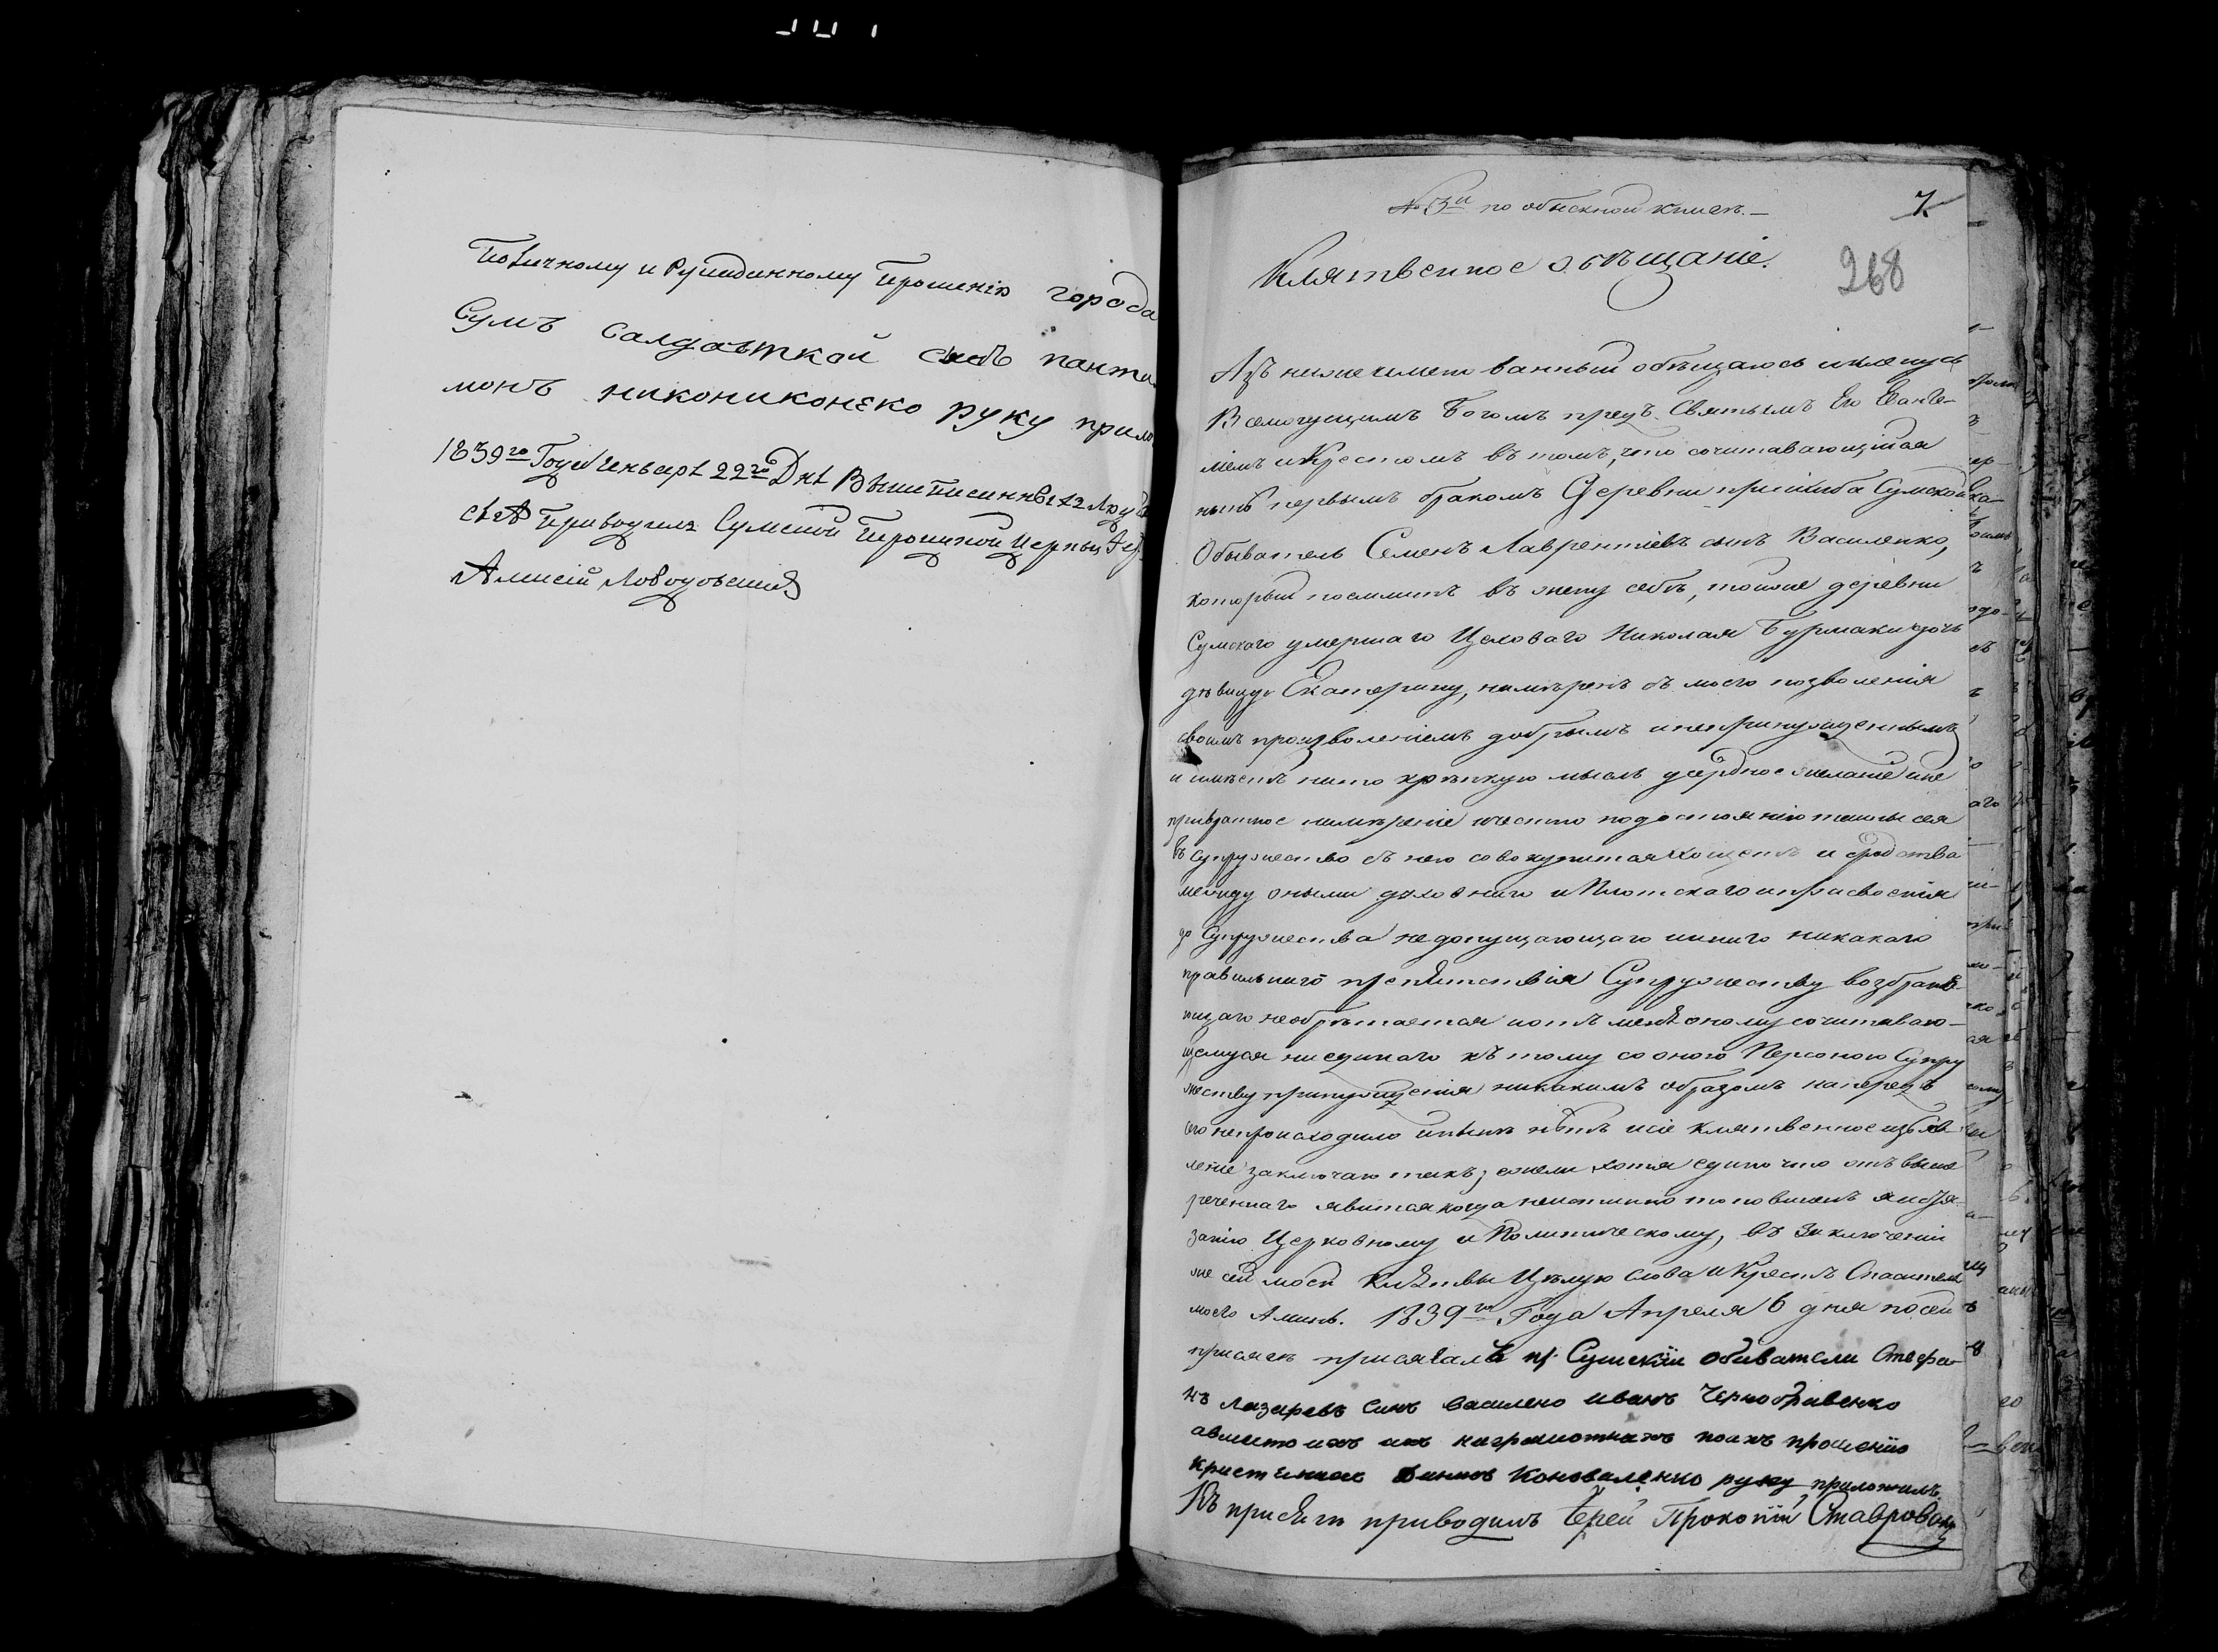 Поличному и рукоданному прошенію города
Сумъ Салдатской синъ панта
монъ никониконεко руку прило
1839го Года Генваря 22го Дня Вышеписанныхъ Люд
сея приводилъ Сумской Троицкой Церкви
Алексій Лободовскій
№ 3й по обыскной книгъ.—
7.
Клятвенное обѣщаніе.
268
Азъ нижеимено ванный обѣщаюсь и кленусь
Всемогущимъ Богомъ предъ Святымъ Его Еванге-
ліемъ и Крестомъ въ томъ, что сочитавающійся
нынѣ первымъ бракомъ Деревни пришиба Сумской
Обыватель Семенъ Лаврентіевъ сынъ Василенко,
который поемлитъ въ жену себѣ, тойже деревни
Сумскаго умершаго Цеховаго Николая Бурмаки дочь
дѣвицу Екатерину, намѣренъ съ моего позволенія
своимъ произволеніемъ добрымъ и непринужденнымъ
и имѣетъ на то крѣпкую мысль усердное желаніе и не
превратное намѣреніе и честно по достоянію таинься
въ Супружество съ нею совокупится хощетъ и сродства
между оными духовнаго и Плотскаго и присвоенія
до Супружества недопущающаго и инаго никакаго
правильнаго препятствія Супружеству возбраня-
ющаго необрѣтается и отъ меня оному сочитаваю-
щемуся ни единаго къ тому со оною Персоною Супру
жеству принужденія никакимъ образомъ напредъ
сего непроисходило и нынѣ нѣтъ и сіе клятвенное изъяв-
леніе заключаю такъ; ежели хотя едино что отъ выше
реченнаго явится когда неистинно то повиненъ я наказ-
занію Церковному и Политическому, въ Заключеніи
же сей моей Клятвы Цѣлую слова и Крестъ Спасителя
моего Аминь. 1839го Года Апреля 6 дня по сей
присягѣ присягалъ Сумскїи обиватели Стефа-
нъ Лазаревъ синъ василено иванъ Чернобривенко
авместо ихъ неграмотнихъ поихъ прошенїю
Коноваленко руку приложилъ.
Къ присягѣ приводилъ Іерей Прокопій Ставровский